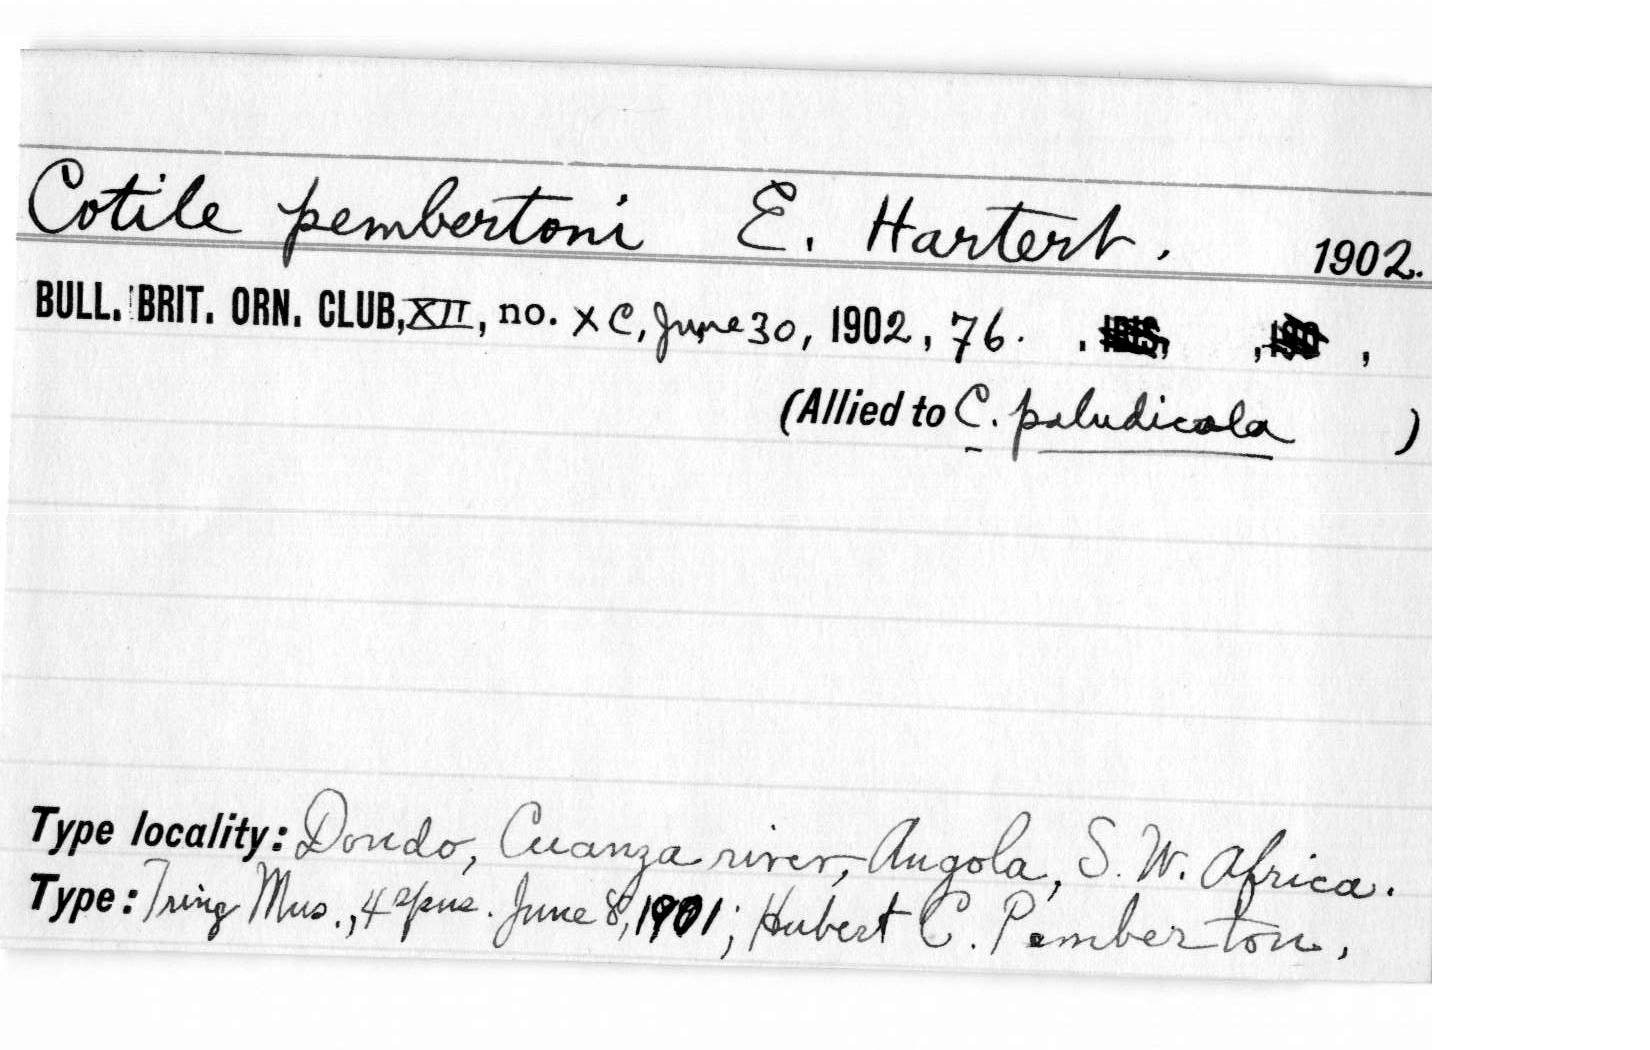 Cotile pembertoni E. Hartert. 1902.
BULL. BRIT. ORN. CLUB, XII, no. XC, June 30, 1902, 76. , IBIS, , 190 ,
(Allied to C. paludicola )
Type locality: Dondo, Cuanza river, Angola, S. W. Africa.
Type: Tring Mus., 4 spns. June 8, 1901; Hubert C. Pemberton.